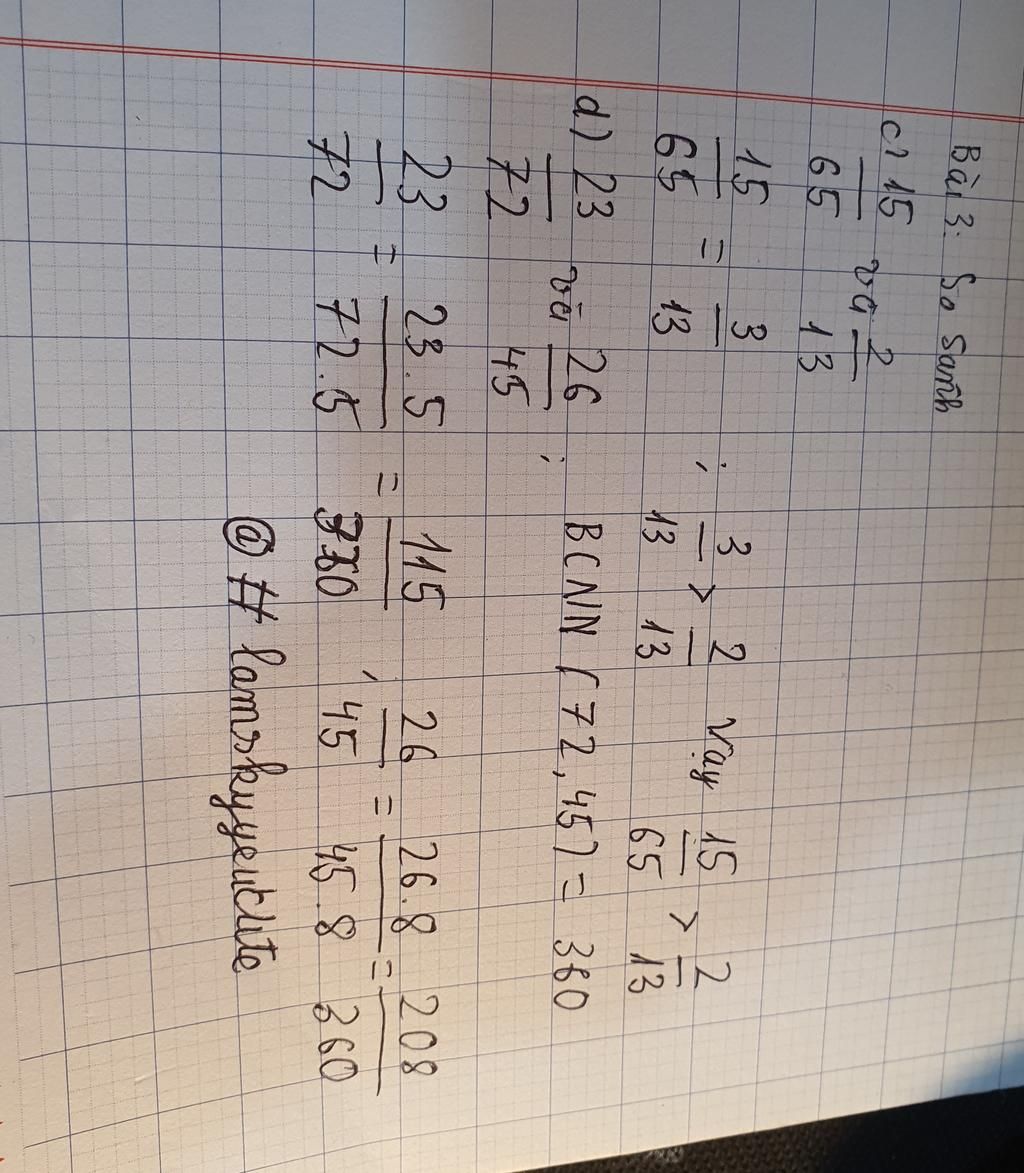 Bài 3: So sánh
c) 15/65 và 2/13
15/65 = 3/13 ; 3/13 > 2/13 Vậy 15/65 > 2/13
d) 23/72 và 26/45 ; BCNN (72,45) = 360
23/72 = 23.5/72.5 = 115/360 , 26/45 = 26.8/45.8 = 208/360